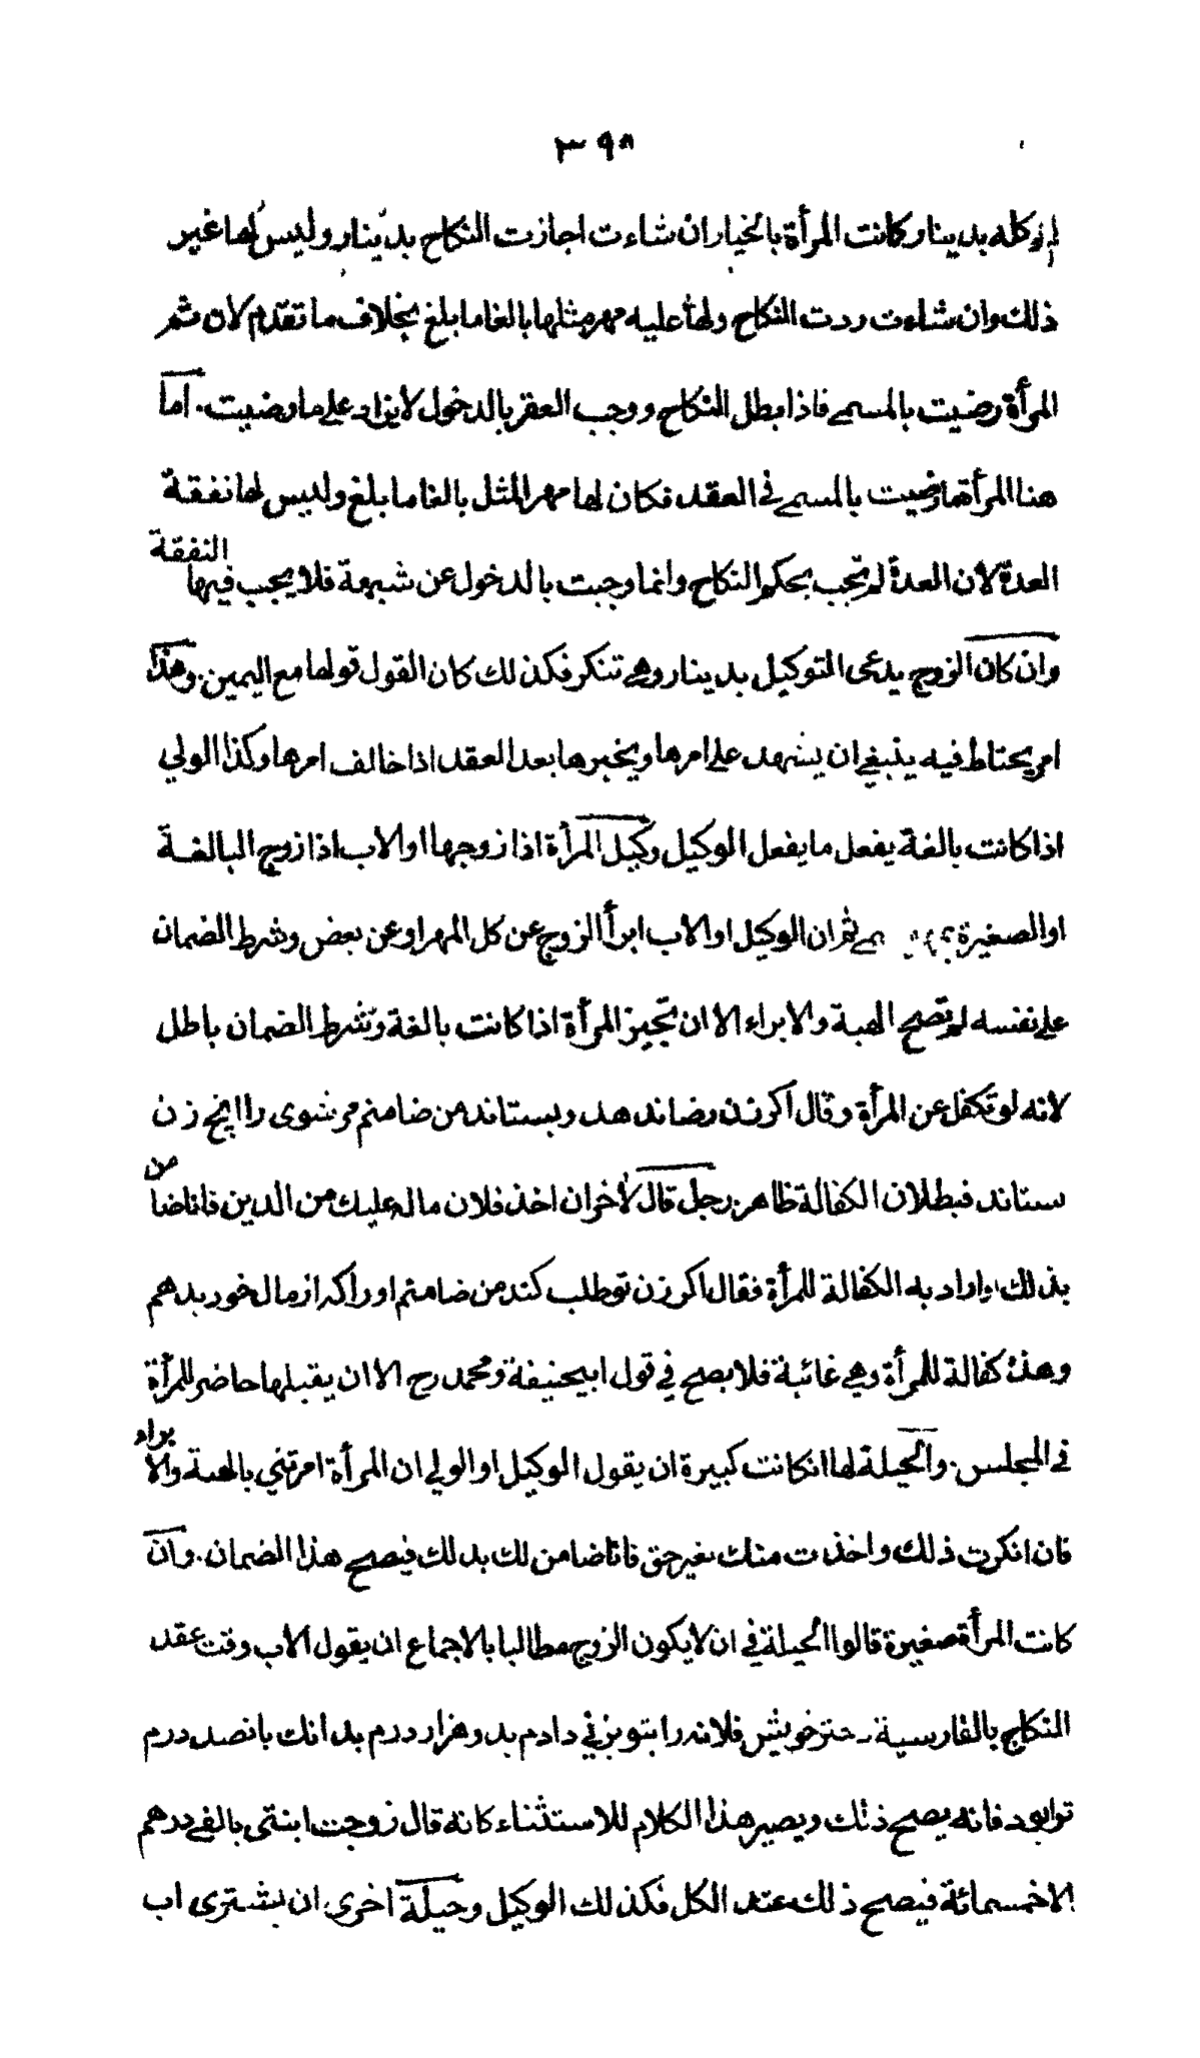 ٣٩٨
لم توكله بدينار كانت المرأة بالخيار ان شاءت اجازت النكاح بدينار وليس لها غير
ذلك وان شاءت ردت النكاح ولها عليه مهر مثلها بالغا ما بلغ بخلاف ما تقدم لان ثمر
المرأة رضيت بالمسمى فاذا بطل النكاح ووجب العقر بالدخول لا يزاد على ما رضيت . اما
هنا المرأة ما رضيت بالمسمى في العقد فكان لها مهر المثل بالغا ما بلغ وليس لها نفقة
العدة لان العدة لم تجب بحكم النكاح وانما وجبت بالدخول عن شبهة فلا يجب فيها النفقة
وان كان الزوج يدعى التوكيل بدينار وهي تنكر فكذلك كان القول قولها مع اليمين . وهذا
امر يحتاط فيه ينبغي ان يشهد على امرها ويخبرها بعد العقد اذا خالف امرها وكذا الولي
اذا كانت بالغة يفعل ما يفعل الوكيل وكيل المرأة اذا زوجها او الاب اذا زوج البالغة
او الصغيرة ثم ان الوكيل او الاب ابرأ الزوج عن كل المهر او عن بعض وشرط الضمان
على نفسه لم تصح الهبة والابراء الا ان تجيز المرأة اذا كانت بالغة وشرط الضمان باطل
لانه لو تكفل عن المرأة وقال اكر زن رضا ندهد وبستاند من ضامنم مر شوى را اينچ زن
ستاند فبطلان الكفالة ظاهر . رجل قال لأخر ان اخذ فلان ماله عليك من الدين فانا ضامن
بذلك واراد به الكفالة للمرأة فقال اكر زن تو طلب كند من ضامنم اورا كه از مال خود بدهم
وهذه كفالة للمرأة وهي غائبة فلا يصح في قول ابيحنيفة ومحمد رح الا ان يقبلها حاضر للمرأة
في المجلس . والحيلة لها انكانت كبيرة ان يقول الوكيل او الولي ان المرأة امرتني بالهبة والابراء
فان انكرت ذلك واخذت منك بغير حق فانا ضامن لك بدلك فيصح هذا الضمان . وان
كانت المرأة صغيرة قالوا الحيلة في ان لا يكون الزوج مطالبا بالاجماع ان يقول الاب وقت عقد
النكاح بالفارسية دختر خويش فلانه را بتو بزني دادم بدو هزار درم بدانك بانصد درم
ترا بود فانه يصح ذلك ويصير هذا الكلام للاستثناء كانه قال زوجت ابنتى بالفى درهم
الا خمسمائة فيصح ذلك عند الكل فكذلك الوكيل وحيلة اخرى ان يشترى اب